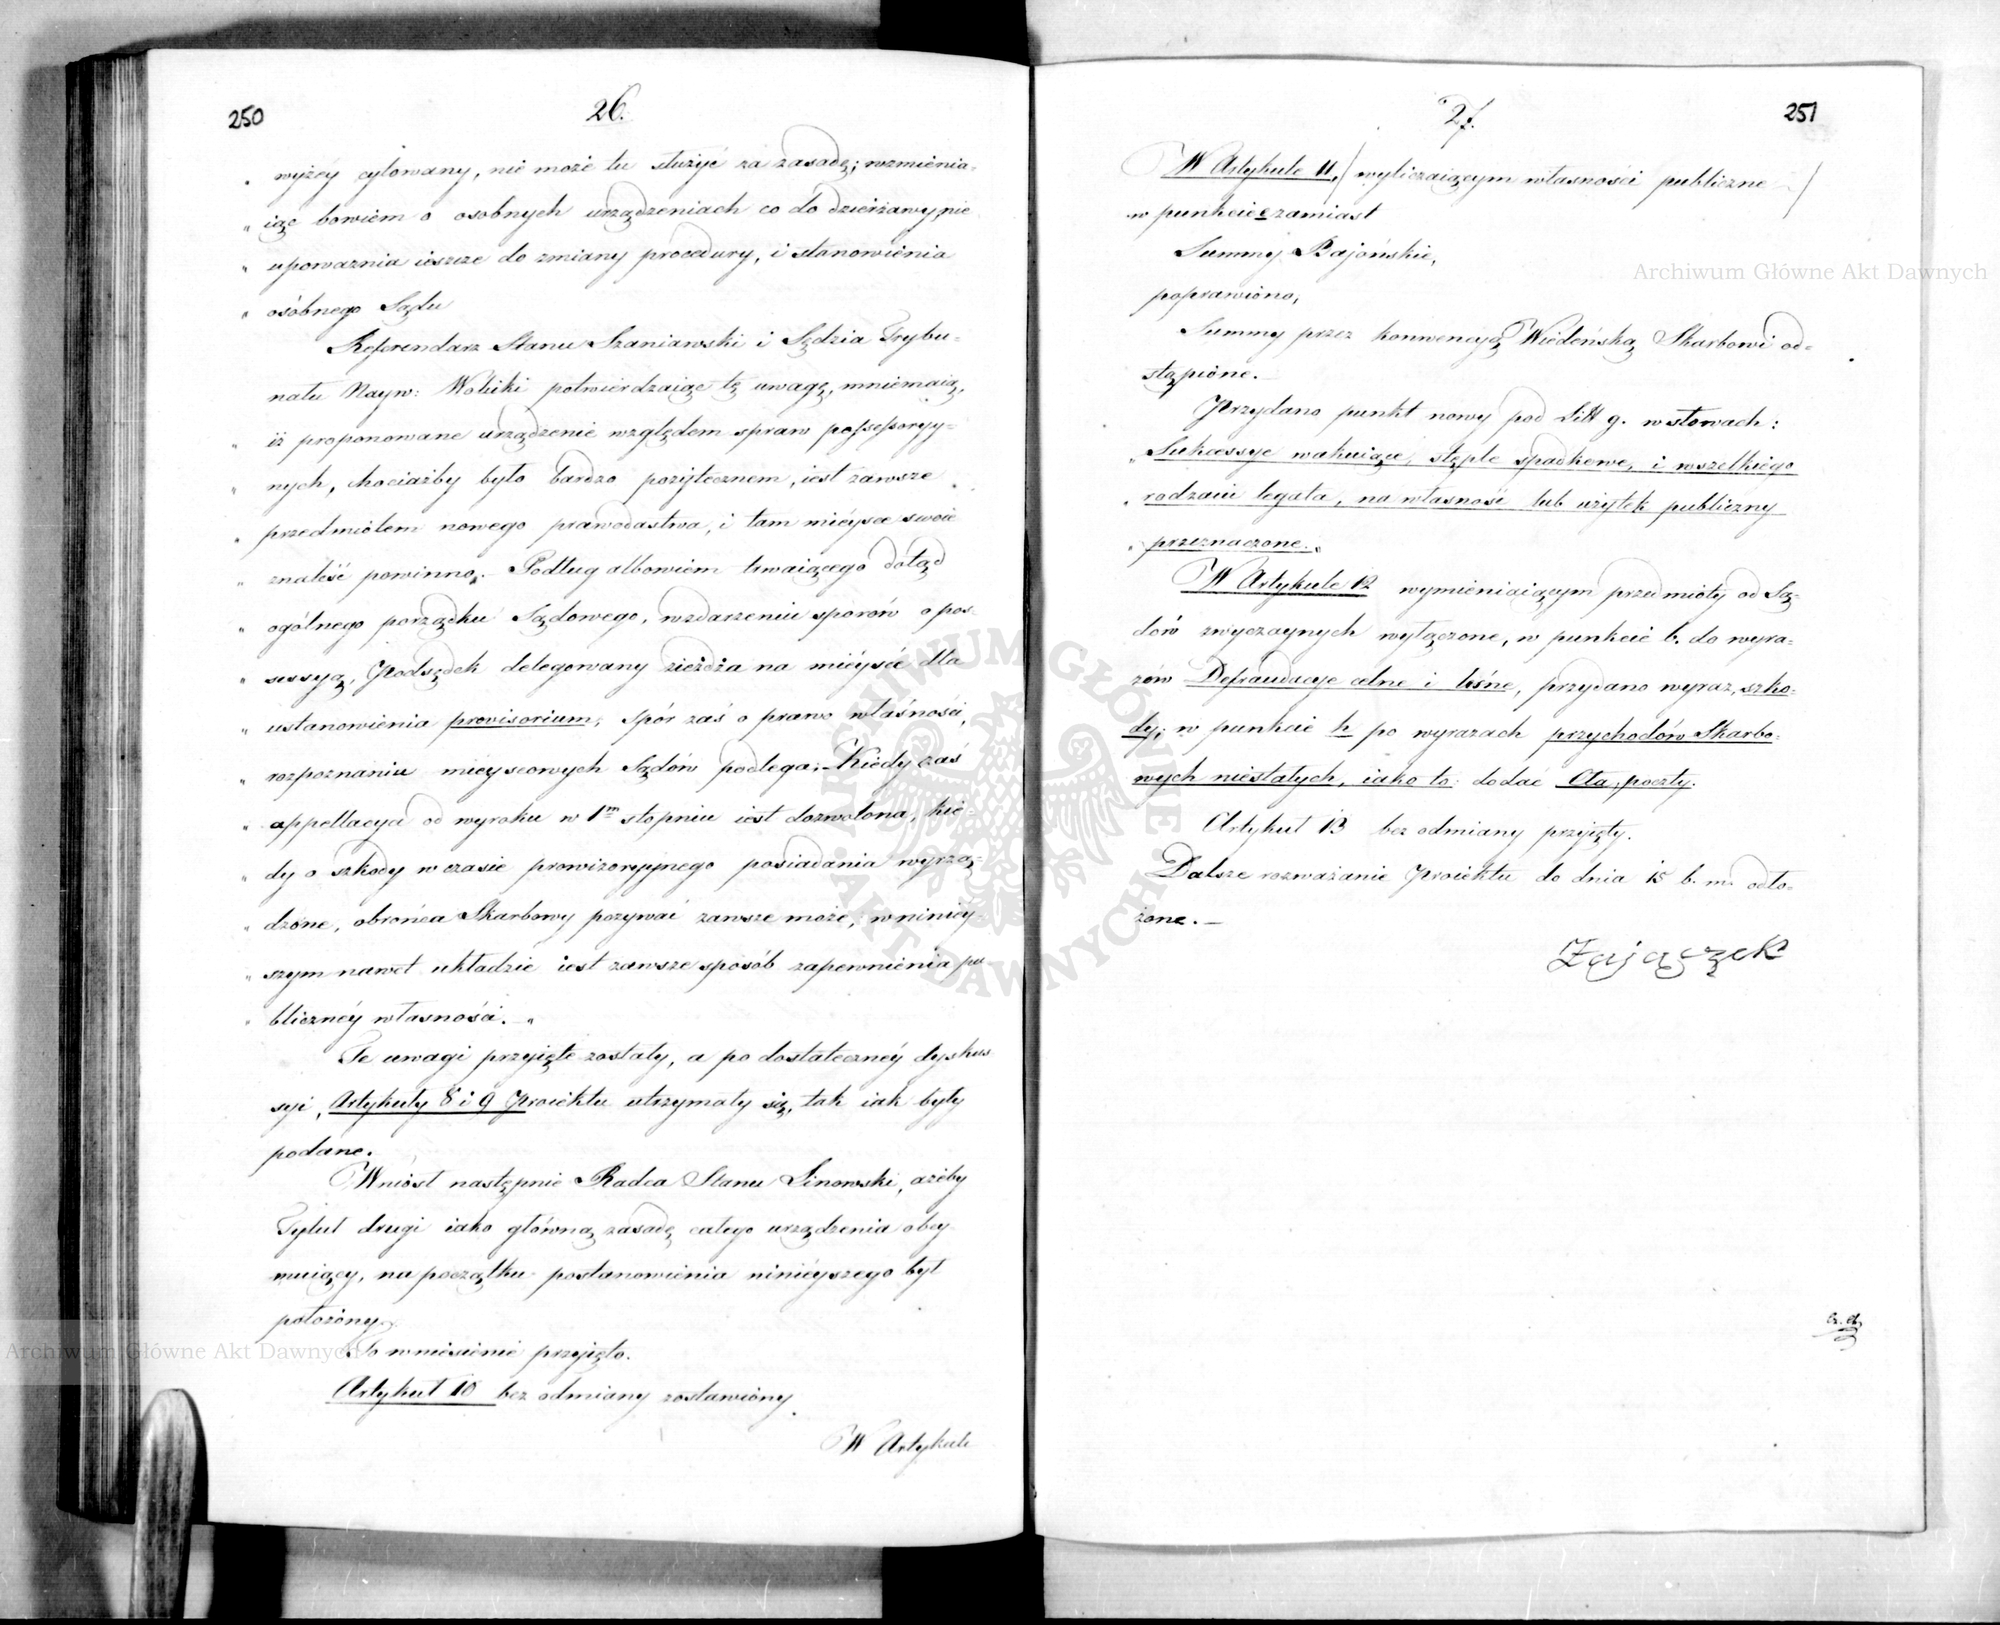 250
26.
wyżéy cytowany, nie może tu służyć za zasadę; wzmienia-
„ iąc bowiem o osobnych urządzeniach co do dzierżawy, nie
„ upoważnia ieszcze do zmiany procedury, i stanowienia
„ osóbnego Sądu
Referendarz Stanu Szaniawski i Sędzia Trybu-
nału Nayw: Wolicki potwierdzaiąc tę uwagę, mniemaią,
„ iż proponowane urządzenie względem spraw possessoryy-
„ nych, chociażby było bardzo pożytecznem, iest zawsze
„ przedmiotem nowego prawodastwa, i tam mieysce swoie
„ znaleść powinno. - Podług albowiem trwaiącego dotąd
„ ogólnego porządku Sądowego, w zdarzeniu sporów o pos-
„ sessyą, Podsędek delegowany zieżdża na mieysce dla
„ ustanowienia provisorium, spór zaś o prawo własności,
„ rozpoznaniu mieyscowych Sądów podlega; - Kiedy zaś
„ appellacya od wyroku w 1m stopniu iest dozwolona, kie-
„ dy o szkody w czasie prowizoryynego posiadania wyrzą-
„ dzone, obrońca Skarbowy pozywać zawsze może, w niniey-
„ szym nawet układzie iest zawsze sposób zapewnienia pu
„ bliczney własności. „
Te uwagi przyięte zostały, a po dostateczney dyskus
syi, Artykuły 8 i 9 Proiektu utrzymały się, tak iak były
podane.
Wniósł następnie Radca Stanu Linowski, ażeby
Tytuł drugi iako główną zasadę całego urządzenia obey
muiący, na początku postanowienia ninieyszego był
położony.
To wniesienie przyięto.
Artykuł 10 bez odmiany zostawiony.
W Artykule
27.
251
W Artykule 11, / wyliczaiącym własności publiczne /
w punkcie e zamiast
Summy Bajońskie,
poprawiono,
Summy przez konwencyą Wiedeńską Skarbowi od-
stąpione. -
Przydano punkt nowy pod Litt g. w słowach:
„ Sukcessye wakuiące, stęple spadkowe, i wszelkiego
„ rodzaiu legata, na własność lub użytek publiczny
„ przeznaczone. „
W Artykule 12 wymieniaiącym przedmioty od Są-
dów zwyczaynych wyłączone, w punkcie b. do wyra-
zów Defraudacye celne i leśne, przydano wyraz, szko-
dy; w punkcie h po wyrazach przychodów Skarbo-
wych niestałych, iako to: dodać Cła, poczty.
Artykuł 13 bez odmiany przyięty.
Dalsze rozważanie Proiektu do dnia 15 b. m. odło-
żone. -
Zajączek
Archiwum Główne Akt Dawnych
ARCHIWUM GŁÓWNE AKT DAWNYCH
Archiwum Główne Akt Dawnych